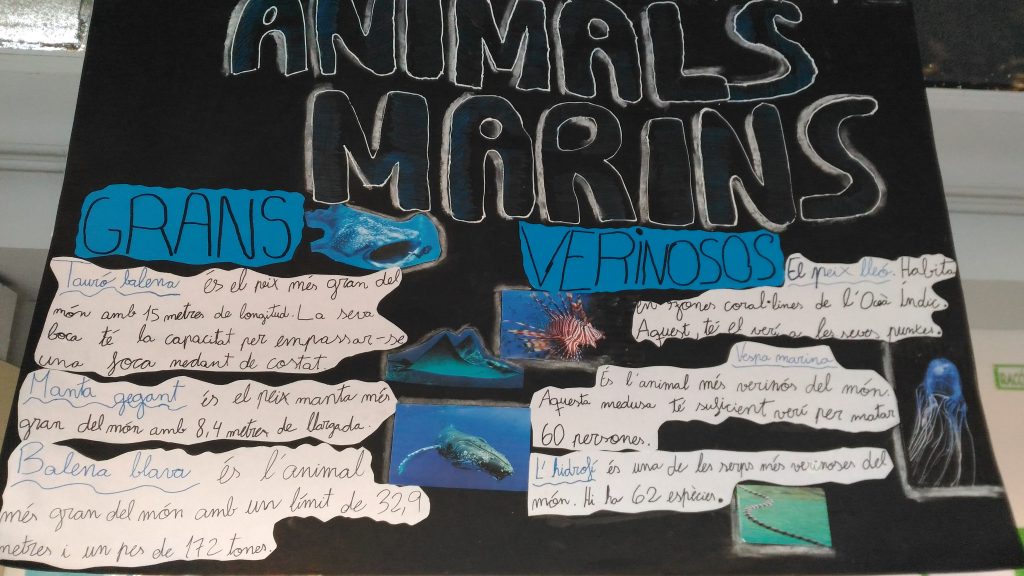 ANIMALS
MARINS
GRANS
Tauró balena és el peix més gran del
món amb 15 metres de longitud. La seva
boca té la capacitat per empassar-se
una foca nedant de costat.
Manta gegant és el peix manta més
gran del món amb 8,4 metres de llargada.
Balena blava és l'animal
més gran del món amb un límit de 32,9
metres i un pes de 172 tones.
VERINOSOS
El peix lleó. Habita
en zones coral·lines de l'Oceà Índic.
Aquest, té el verí a les seves punxes.
Vespa marina
És l'animal més verinós del món.
Aquesta medusa té suficient verí per matar
60 persones.
L'hidrofí és una de les serps més verinoses del
món. Hi ha 62 espècies.